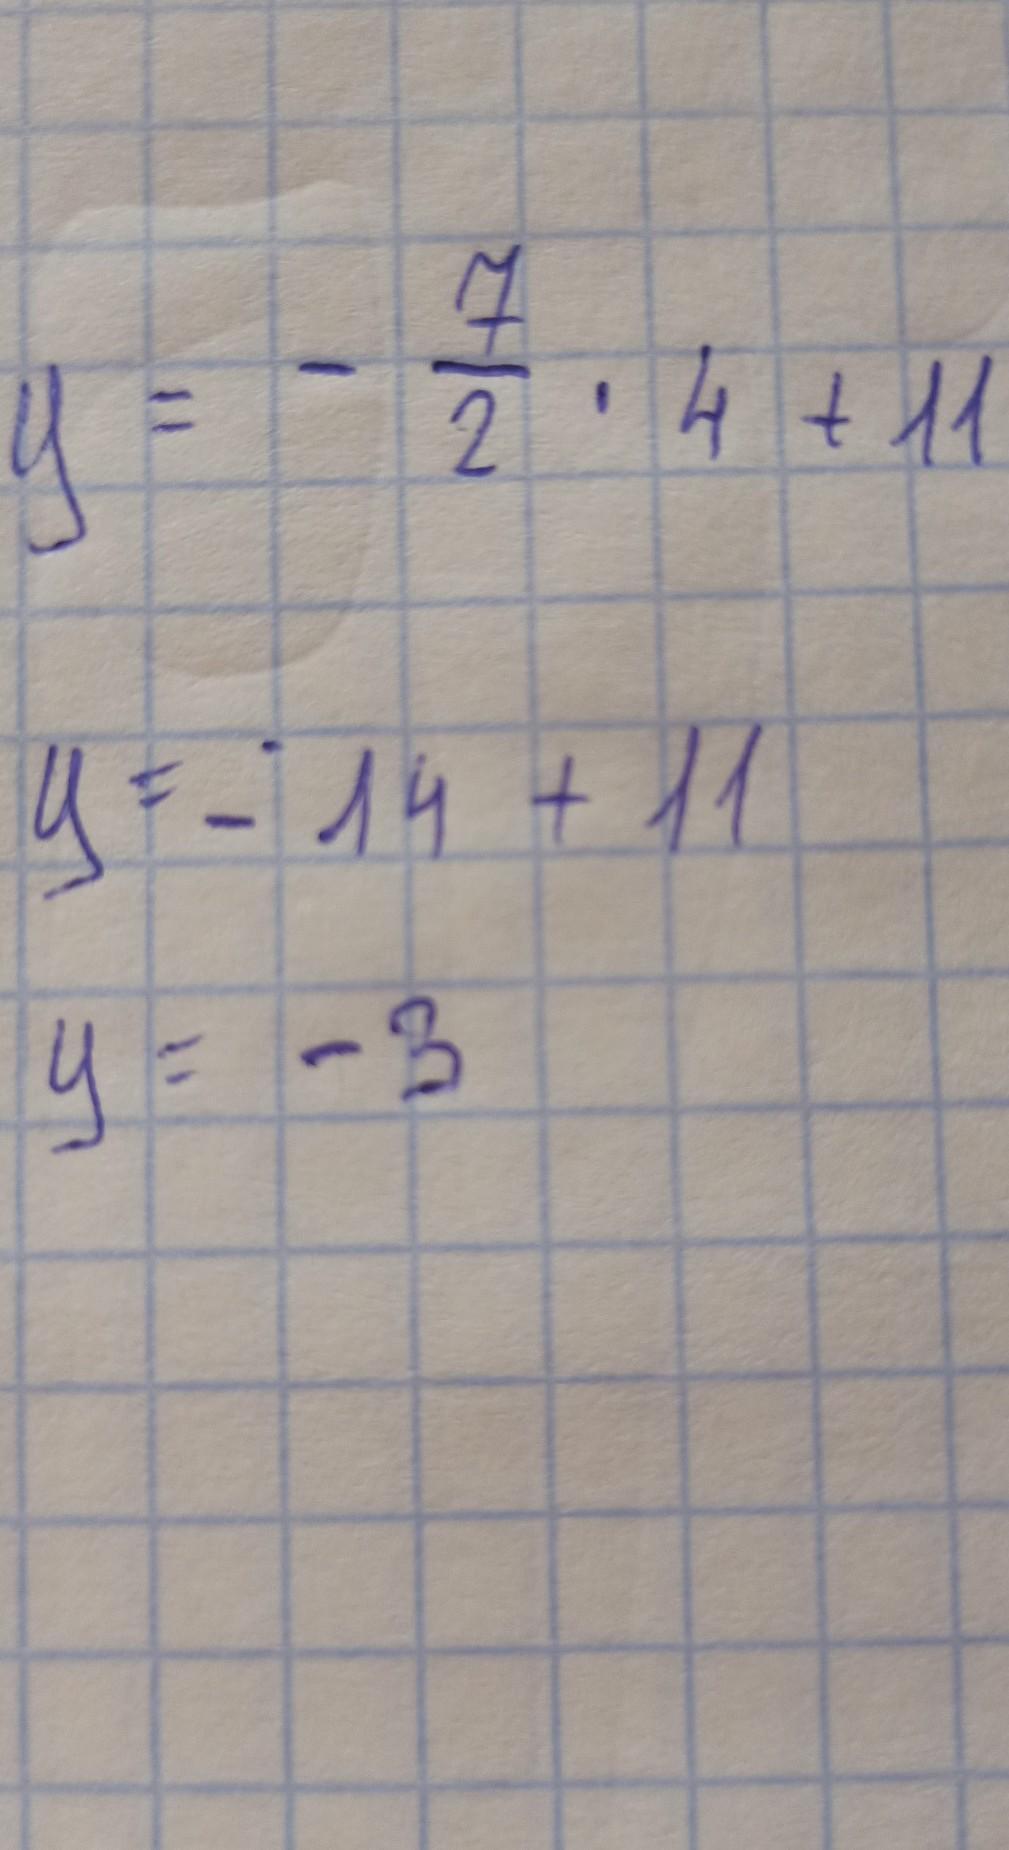 y = - 7/2 · 4 + 11
y = - 14 + 11
y = - 3